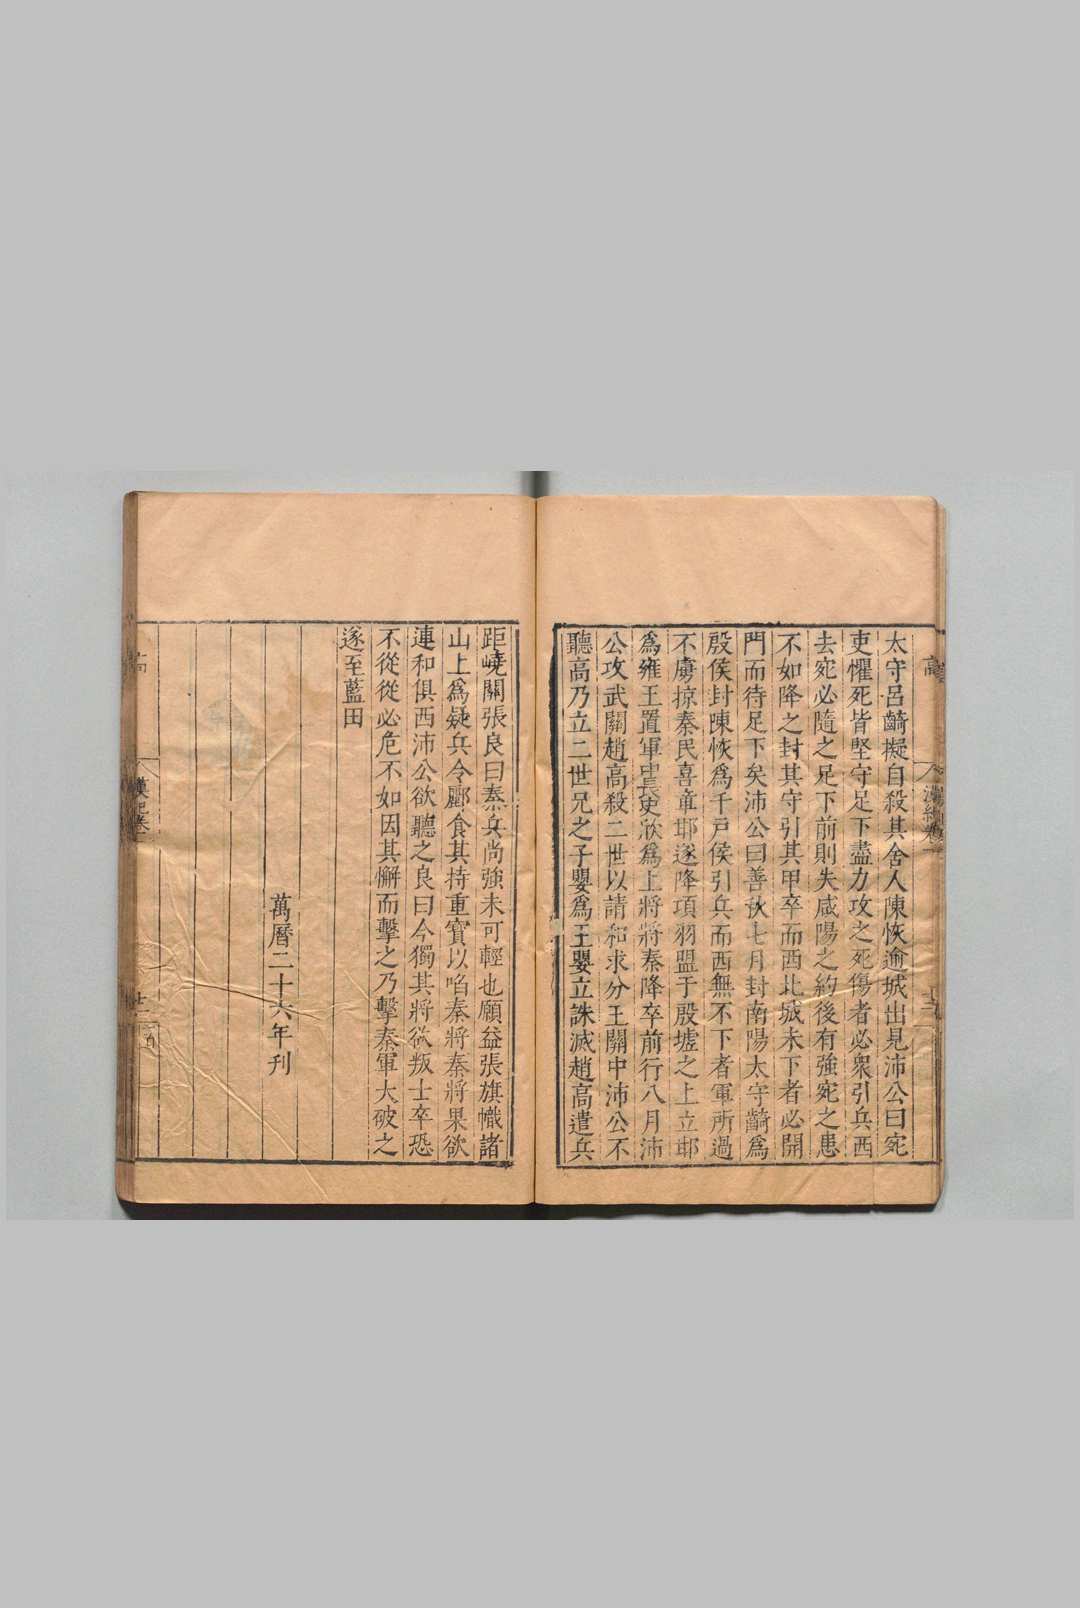 太守呂齮擬自殺其舍人陳恢逾城出見沛公曰宛
吏懼死皆堅守足下盡力攻之死傷者必衆引兵西
去宛必隨之足下前則失咸陽之約後有強宛之患
不如降之封其守引其甲卒而西北城未下者必開
門而待足下矣沛公曰善秋七月封南陽太守齮爲
殷侯封陳恢爲千戸侯引兵而西無不下者軍所過
不虜掠秦民喜章邯遂降項羽盟于殷墟之上立邯
爲雍王置軍中長史欣爲上將將秦降卒前行八月沛
公攻武關趙高殺二世以請和求分王關中沛公不
聽高乃立二世兄之子嬰爲王嬰立誅滅趙高遣兵
距嶢關張良曰秦兵尚強未可輕也願益張旗幟諸
山上爲疑兵令酈食其持重寳以啗秦將秦將果欲
連和俱西沛公欲聽之良曰今獨其將欲叛士卒恐
不從從必危不如因其懈而擊之乃擊秦軍大破之
遂至藍田
萬曆二十六年刊
漢紀卷一